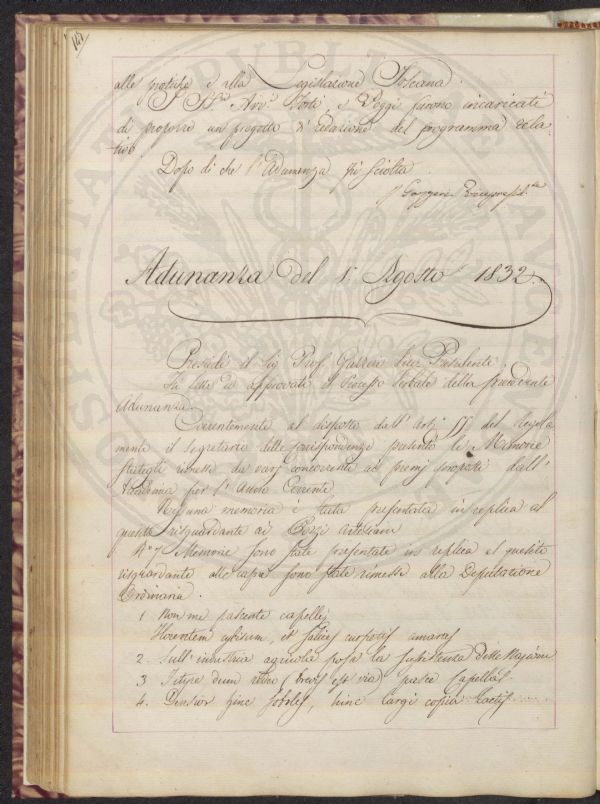 142
alle pratiche e alla Legislazione Toscana.
I SS.ri Avv.i Forti, e Poggi furono incaricati
di proporre un progetto di redazione del programma rela
tivo
Dopo di che l'Adunanza fù sciolta.
Adunanza del 1° Agosto 1832.
Presiede il Sig. Prof. Vice Presidente.
Fu letto ed approvato il Processo Verbale della precedente
Adunanza.
Coerentemente al disposto dall'Art. del Regola
mento il Segretario delle corrispondenze presentò le Memorie
state rimesse da varj concorrenti ai premj proposti dall'
Accademia per l'Anno Corrente.
Nessuna memoria è stata presentata in replica al
quesito risguardante ai Pozzi Artesiani
N° 7 Memorie sono state presentate in replica al quesito
risguardante alle capre sono state rimesse alla Deputazione
Ordinaria.
1 Non me pascente capellę
Florentem cytisum, et salices carpetis amaras
2. Sull'industria agricola posa la sussistenza delle Nazioni
3 Tityre dum redeo (brevis est via) pasce capellas
4. Densior hinc soboles, hinc largi copia lactis